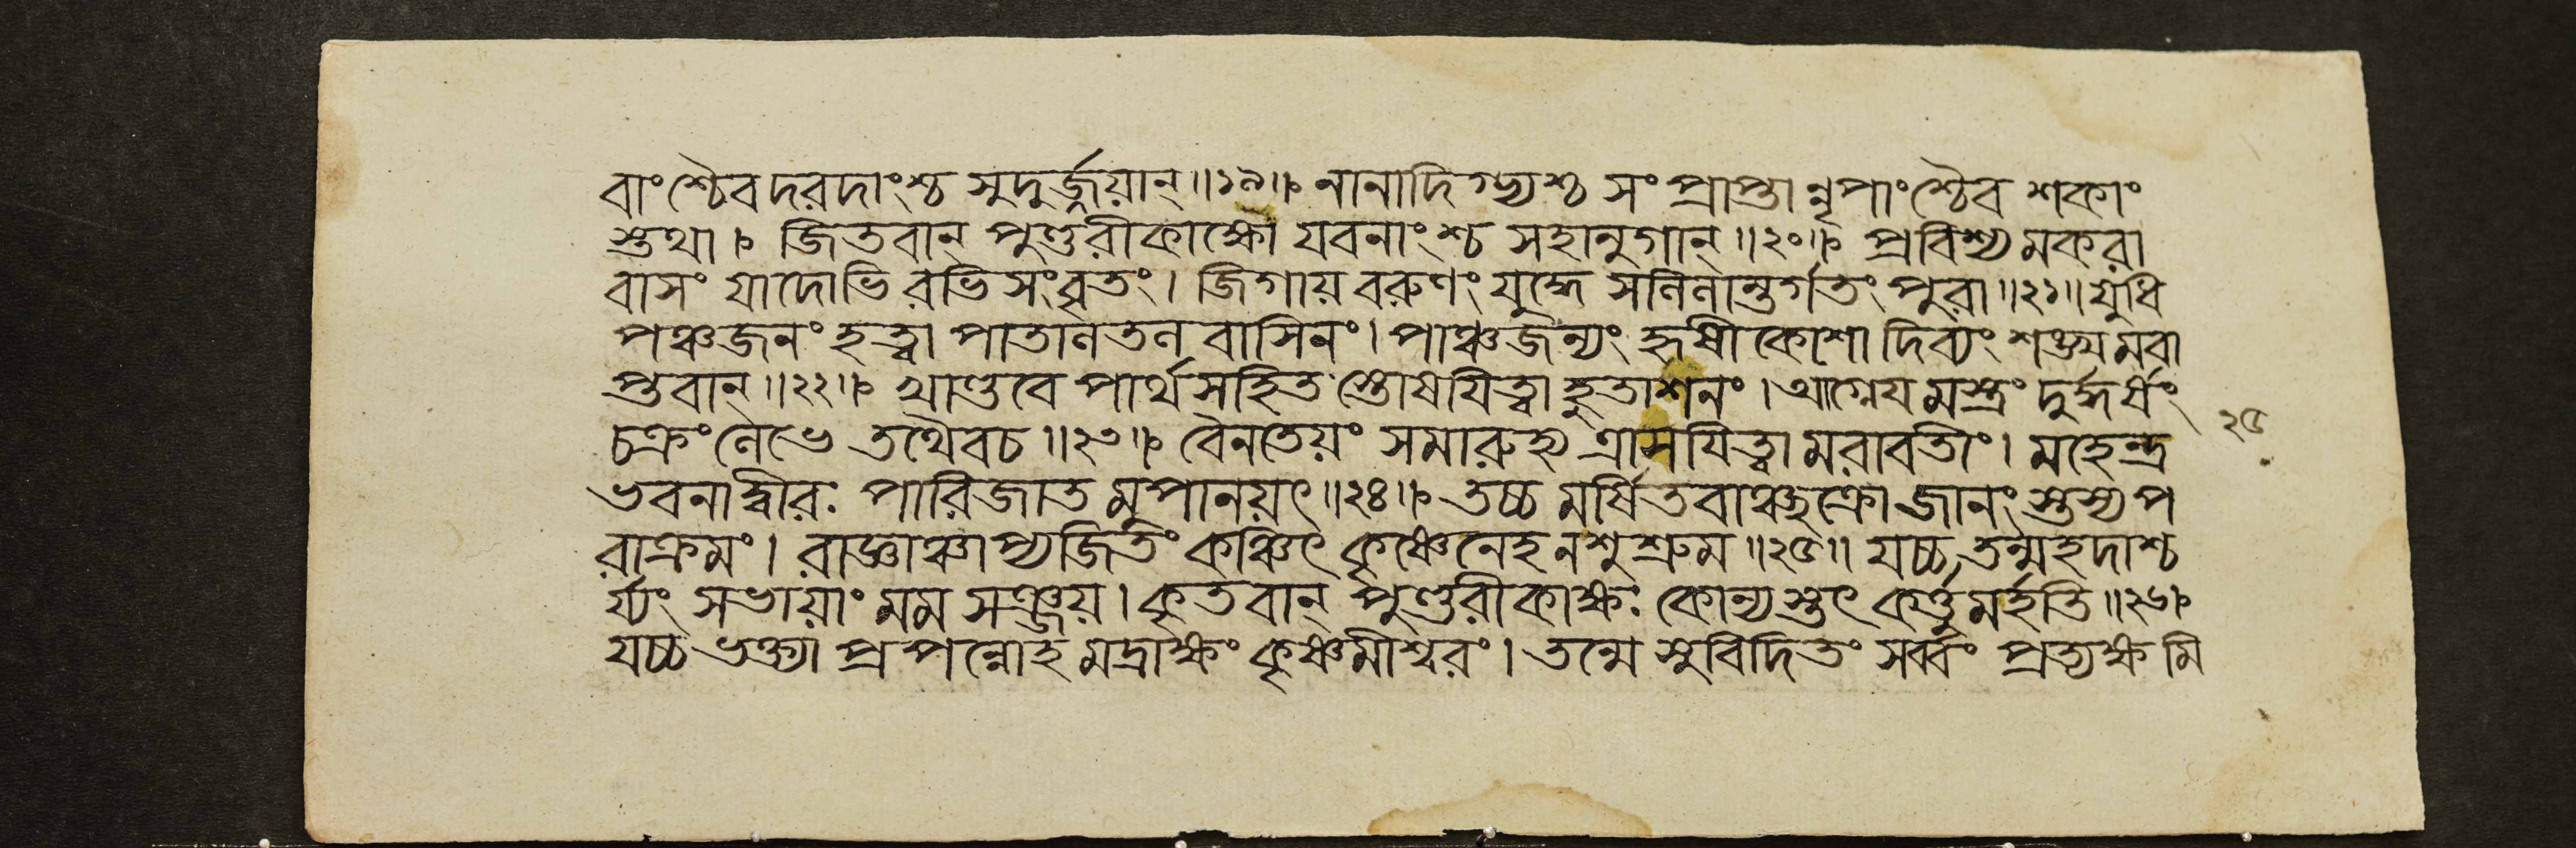 বাংশ্চৈব দরদাংশ্চ সুদুর্জ্জয়ান্॥১৯॥ নানাদিগ্ভ্যশ্চ সংপ্রাপ্তা নৃপাংশ্চৈব শকাং
স্তথা। জিতবান্ পুণ্ডরীকাক্ষো যবনাংশ্চ সহানুগান্॥২০॥ প্রবিশ্য মকরা
বাসং যাদোভি রভিসংবৃতং। জিগায় বরুণং যুদ্ধে সলিলান্তর্গতং পুরা॥২১॥ যুধি
পঞ্চজনং হত্বা পাতালতল বাসিনং। পাঞ্চজন্যং হৃষীকেশো দিব্যং শঙ্খমবা
প্তবান্॥২২॥ খাণ্ডবে পার্থসহিত স্তোষযিত্বা হুতাশনং। আগ্নেয মস্ত্রং দুর্দ্ধর্ষং
চক্রং লেভে তথৈবচ॥২৩॥ বৈনতেয়ং সমারুহ্য ত্রাসযিত্বামরাবতীং। মহেন্দ্র
২৫
ভবনাদ্বীরঃ পারিজাত মুপানয়ৎ॥২৪॥ তচ্চ মর্ষিতবাঞ্ছক্রো জানংস্তস্য প
রাক্রমং। রাজ্ঞাঞ্চাপ্যজিতং কঞ্চিৎ কৃষ্ণেনেহ নশুশ্রুম॥২৫॥ যচ্চ তন্মহদাশ্চ
র্য্যং সভায়াং মম সঞ্জয়। কৃতবান্ পুণ্ডরীকাক্ষঃ কোন্যস্তৎ কর্ত্তুমর্হতি॥২৬॥
যচ্চ ভক্ত্যা প্রপন্নোহ মদ্রাক্ষং কৃষ্ণমীশ্বরং। তন্মে সুবিদিতং সর্ব্বং প্রত্যক্ষ মি